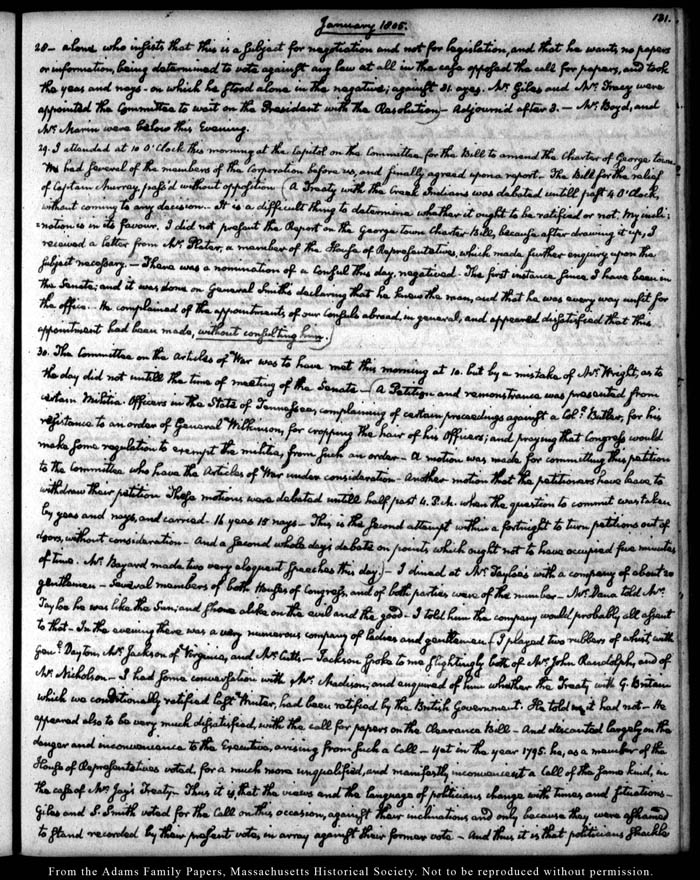 131.
January 1805.
28 – alone who insists that this is a subject for negotiation and not for legislation, and that he wants no papers
or information, being determined to vote against any law at all in the case opposed the call for papers, and took
the yeas and nays – on which he stood alone in the negative; against 31. ayes. Mr. Giles and Mr. Tracy were
appointed the Committee to wait on the President with the Resolution – Adjourn'd after 3. – Mr. Boyd, and
Mr. Mann were below this Evening.
29. I attended at 10 O'Clock this morning at the Capitol on the Committee for the Bill to amend the Charter of George town
We had several of the members of the Corporation before us, and finally agreed upon a report. The Bill for the relief
of Captain Murray, pass'd without opposition (A Treaty with the Creek Indians was debated untill past 4 O'Clock,
without coming to any decision. – It is a difficult thing to determine whether it ought to be ratified or not. My incli=
=nation is in its favour. I did not present the Report on the George town Charter Bill, because after drawing it up, I
received a letter from Mr. Plater, a member of the House of Representatives, which made further enquiry upon the
subject necessary. – There was a nomination of a Consul this day, negatived. The first instance since I have been in
the Senate; and it was done on General Smith's declaring that he knew the man, and that he was every way unfit for
the office. He complained of the appointments of our Consuls abroad, in general, and appeared dissatisfied that this
appointment had been made, without consulting him.)
30. The Committee on the Articles of War was to have met this morning at 10. but by a mistake of Mr. Wright, as to
the day did not untill the time of meeting of the Senate – (A Petition and remonstrance was presented from
certain Militia Officers in the State of Tennessee, complaining of certain proceedings against a Coll. Butler, for his
resistance to an order of General Wilkinson, for cropping the hair of his Officers; and praying that Congress would
make some regulation to exempt the militia, from such an order – A motion was made for committing this petition
to the Committee who have the Articles of War under consideration – Another motion that the petitioners have leave to
withdraw their petition These motions were debated untill half past 4. P.M. when the question to commit was taken
by yeas and nays, and carried. 16 yeas 15 nays – This is the second attempt within a fortnight to turn petitions out of
doors, without consideration – And a second whole day's debate on points which ought not to have occupied five minutes
of time. Mr. Bayard made two very eloquent speeches this day.) – I dined at Mr. Tayloe's with a company of about 20
gentlemen – Several members of both Houses of Congress, and of both parties were of the number – Mr. Dana told Mr.
Tayloe he was like the Sun; and shone alike on the evil and the good – I told him the company would probably all assent
to that – In the evening there was a very numerous company of ladies and gentlemen (I played two rubbers of whist with
Genl. Dayton Mr. Jackson of Virginia, and Mr. Cutts – Jackson spoke to me slightingly both of Mr. John Randolph, and of
Mr. Nicholson – I had some conversation with Mr. Madison; and enquired of him whether the Treaty with G. Britain
which we conditionally ratified last Winter, had been ratified by the British Government. He told me it had not – He
appeared also to be very much dissatisfied, with the call for papers on the Clearance Bill – And descanted largely on the
danger and inconvenience to the Executive, arising from such a Call – Yet in the year 1795. he, as a member of the
House of Representatives voted, for a much more unqualified, and manifestly inconvenient a Call of the same kind, in
the case of Mr. Jay's Treaty – Thus it is, that the views and the language of politicians change with times and situations –
Giles and S. Smith voted for the Call on this occasion, against their inclinations and only because they were ashamed
to stand recorded by their present votes in array against their former vote – And thus it is that politicians shackle
From the Adams Family Papers, Massachusetts Historical Society. Not to be reproduced without permission.